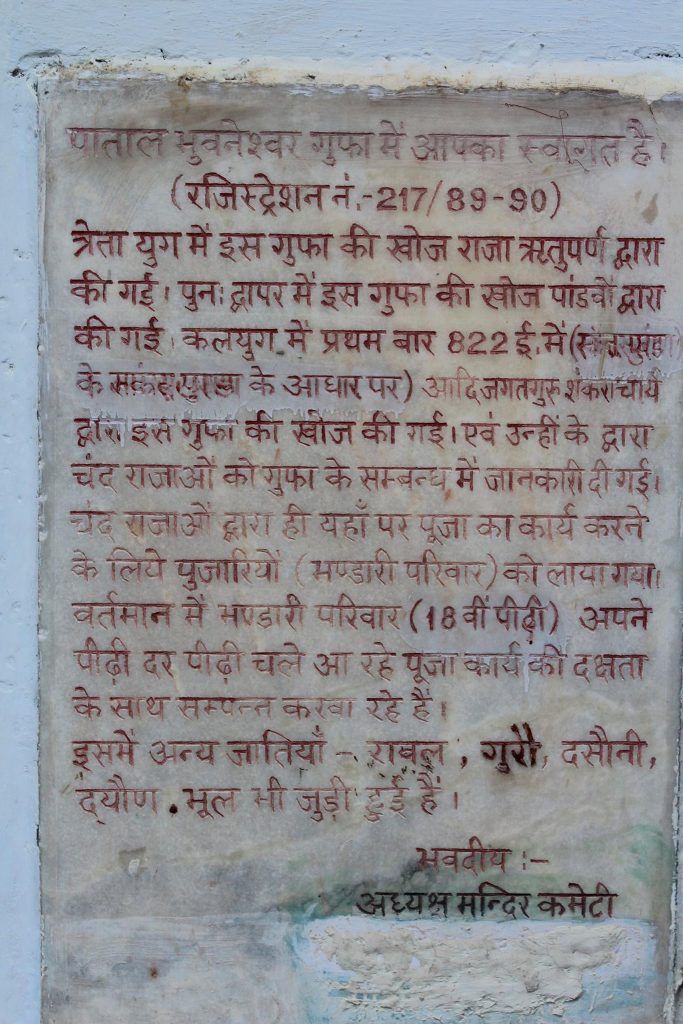 पाताल भुवनेश्वर गुफा में आपका स्वागत है।
(रजिस्ट्रेशन नं.-217/89-90)
त्रेता युग में इस गुफा की खोज राजा ऋतुपर्ण द्वारा
की गई। पुनः द्वापर में इस गुफा की खोज पांडवों द्वारा
की गई। कलयुग में प्रथम बार 822 ई. में
के आधार पर) आदि जगतगुरु शंकराचार्य
द्वारा इस गुफा की खोज की गई। एवं उन्हीं के द्वारा
चंद राजाओं को गुफा के सम्बन्ध में जानकारी दी गई।
चंद राजाओं द्वारा ही यहाँ पर पूजा का कार्य करने
के लिये पुजारियों (भण्डारी परिवार) को लाया गया।
वर्तमान में भण्डारी परिवार (18 वीं पीढ़ी) अपने
पीढ़ी दर पीढ़ी चले आ रहे पूजा कार्य की दक्षता
के साथ सम्पन्न करवा रहे हैं।
इसमें अन्य जातियाँ - रावल, गुरौ, दसौनी,
द्यौण. भूल भी जुड़ी हुई हैं।
भवदीय :-
अध्यक्ष मन्दिर कमेटी